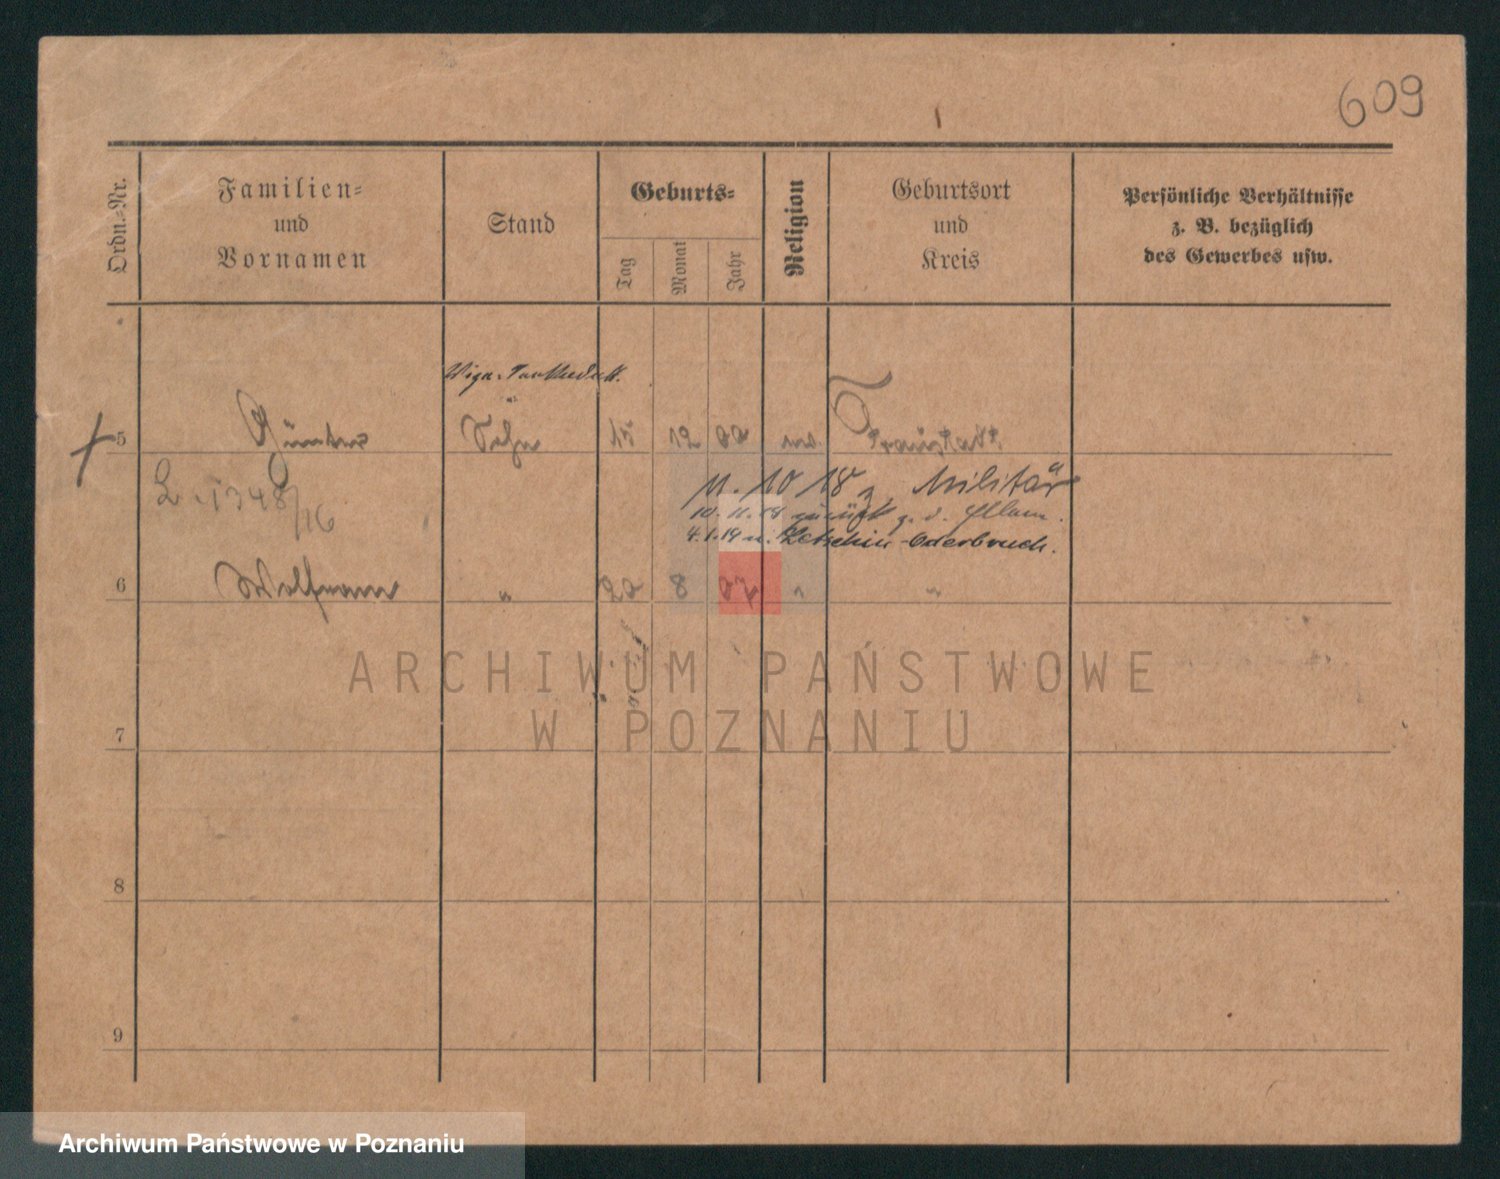 609
Ordn.-Nr.
Familien-
und
Vornamen
Stand
Geburts-
Tag
Monat
Jahr
Religion
Geburtsort
und
Kreis
Persönliche Verhältnisse
z. B. bezüglich
des Gewerbes usw.
5 Günther Sohn 15 12 00 Fraustadt
L. 1348/16
11. 10 18 z. Militär
10. 11. 18 zurück z. d.
4.1.19 n. Letschin-Oderbruch.
6 Wolfram " 20 8 07 " "
ARCHIWUM PAŃSTWOWE
W POZNANIU
7
8
9
Archiwum Państwowe w Poznaniu